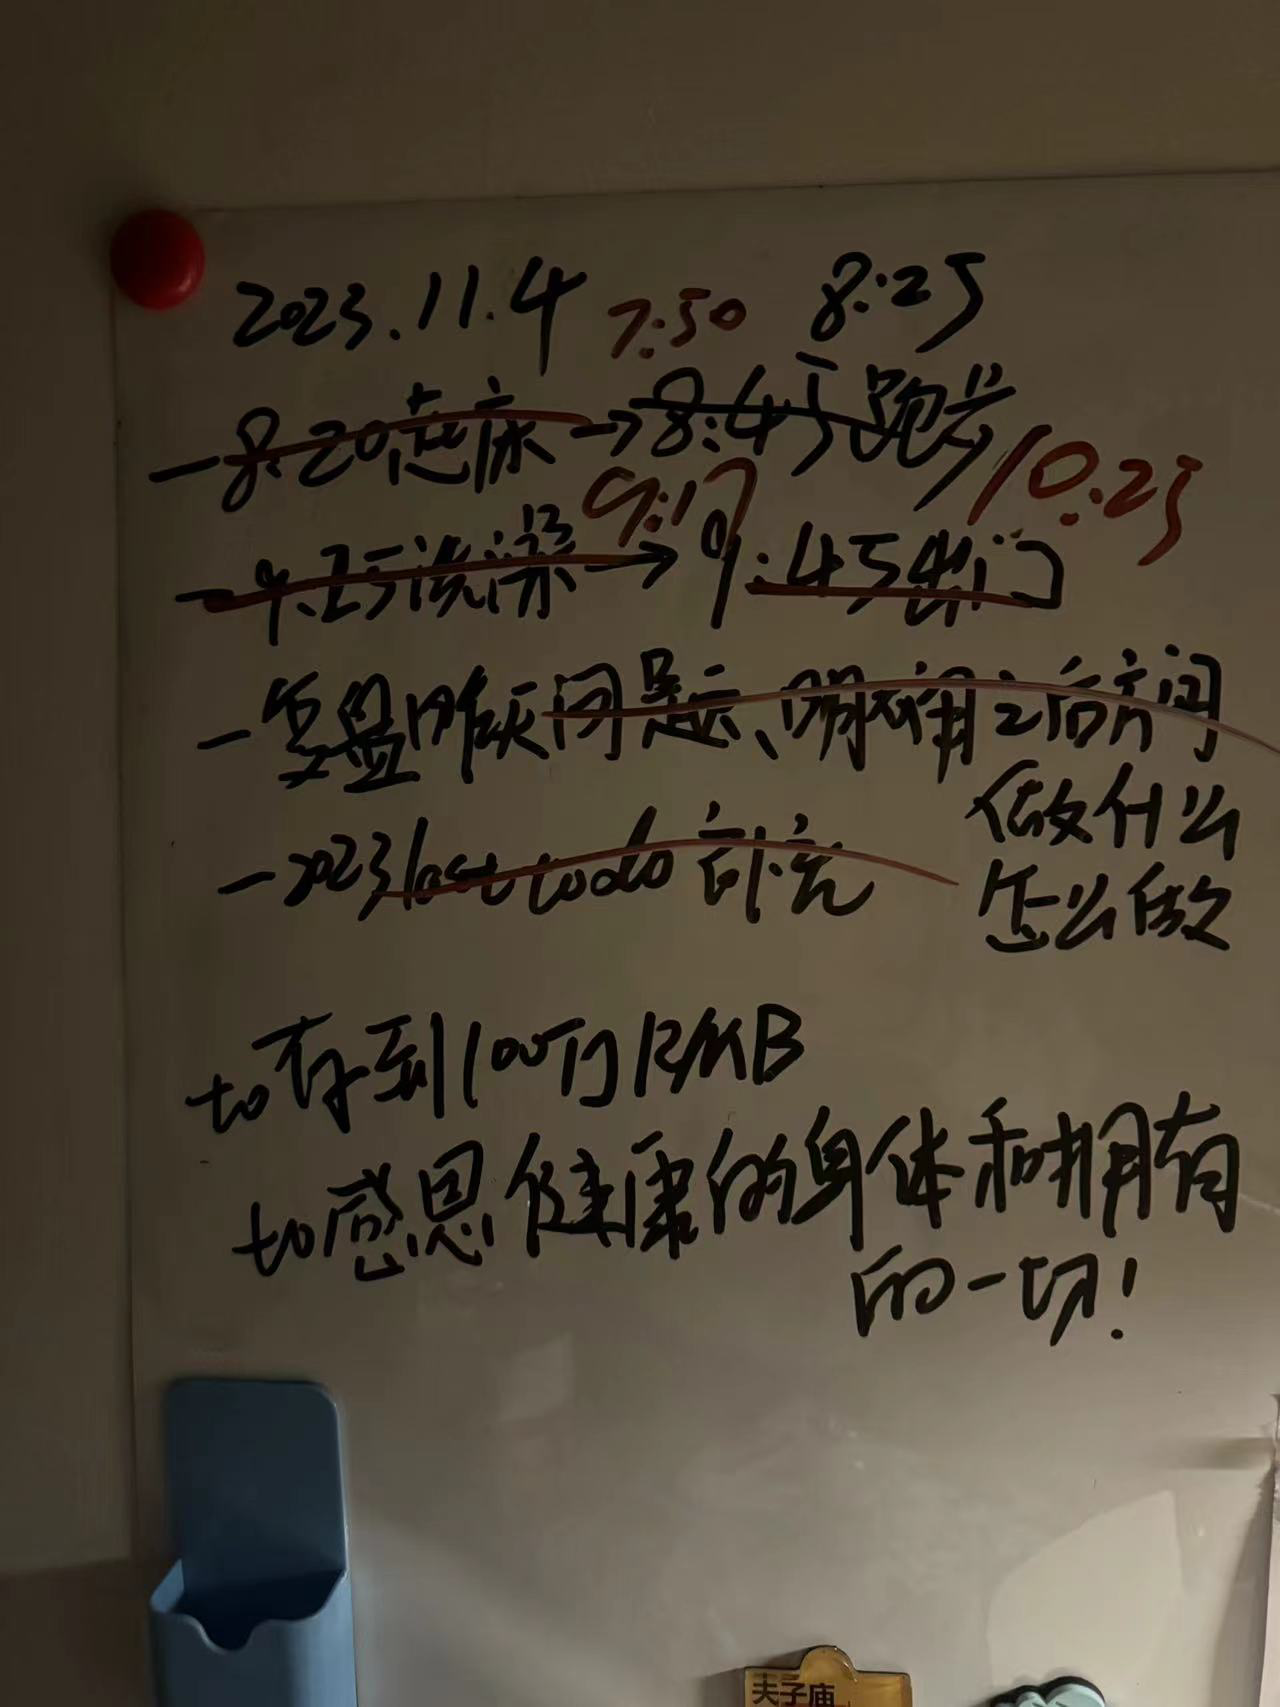 2023.11.4 7:50 8:25
-8:20起床→8:45跑步
9:17 10:25
-9:25洗澡→9:45出门
-复盘昨天问题、明确之后方向
做什么
怎么做
-2023 last todo 补充
to存到100万RMB
to感恩健康的身体和拥有
的一切!
夫子庙